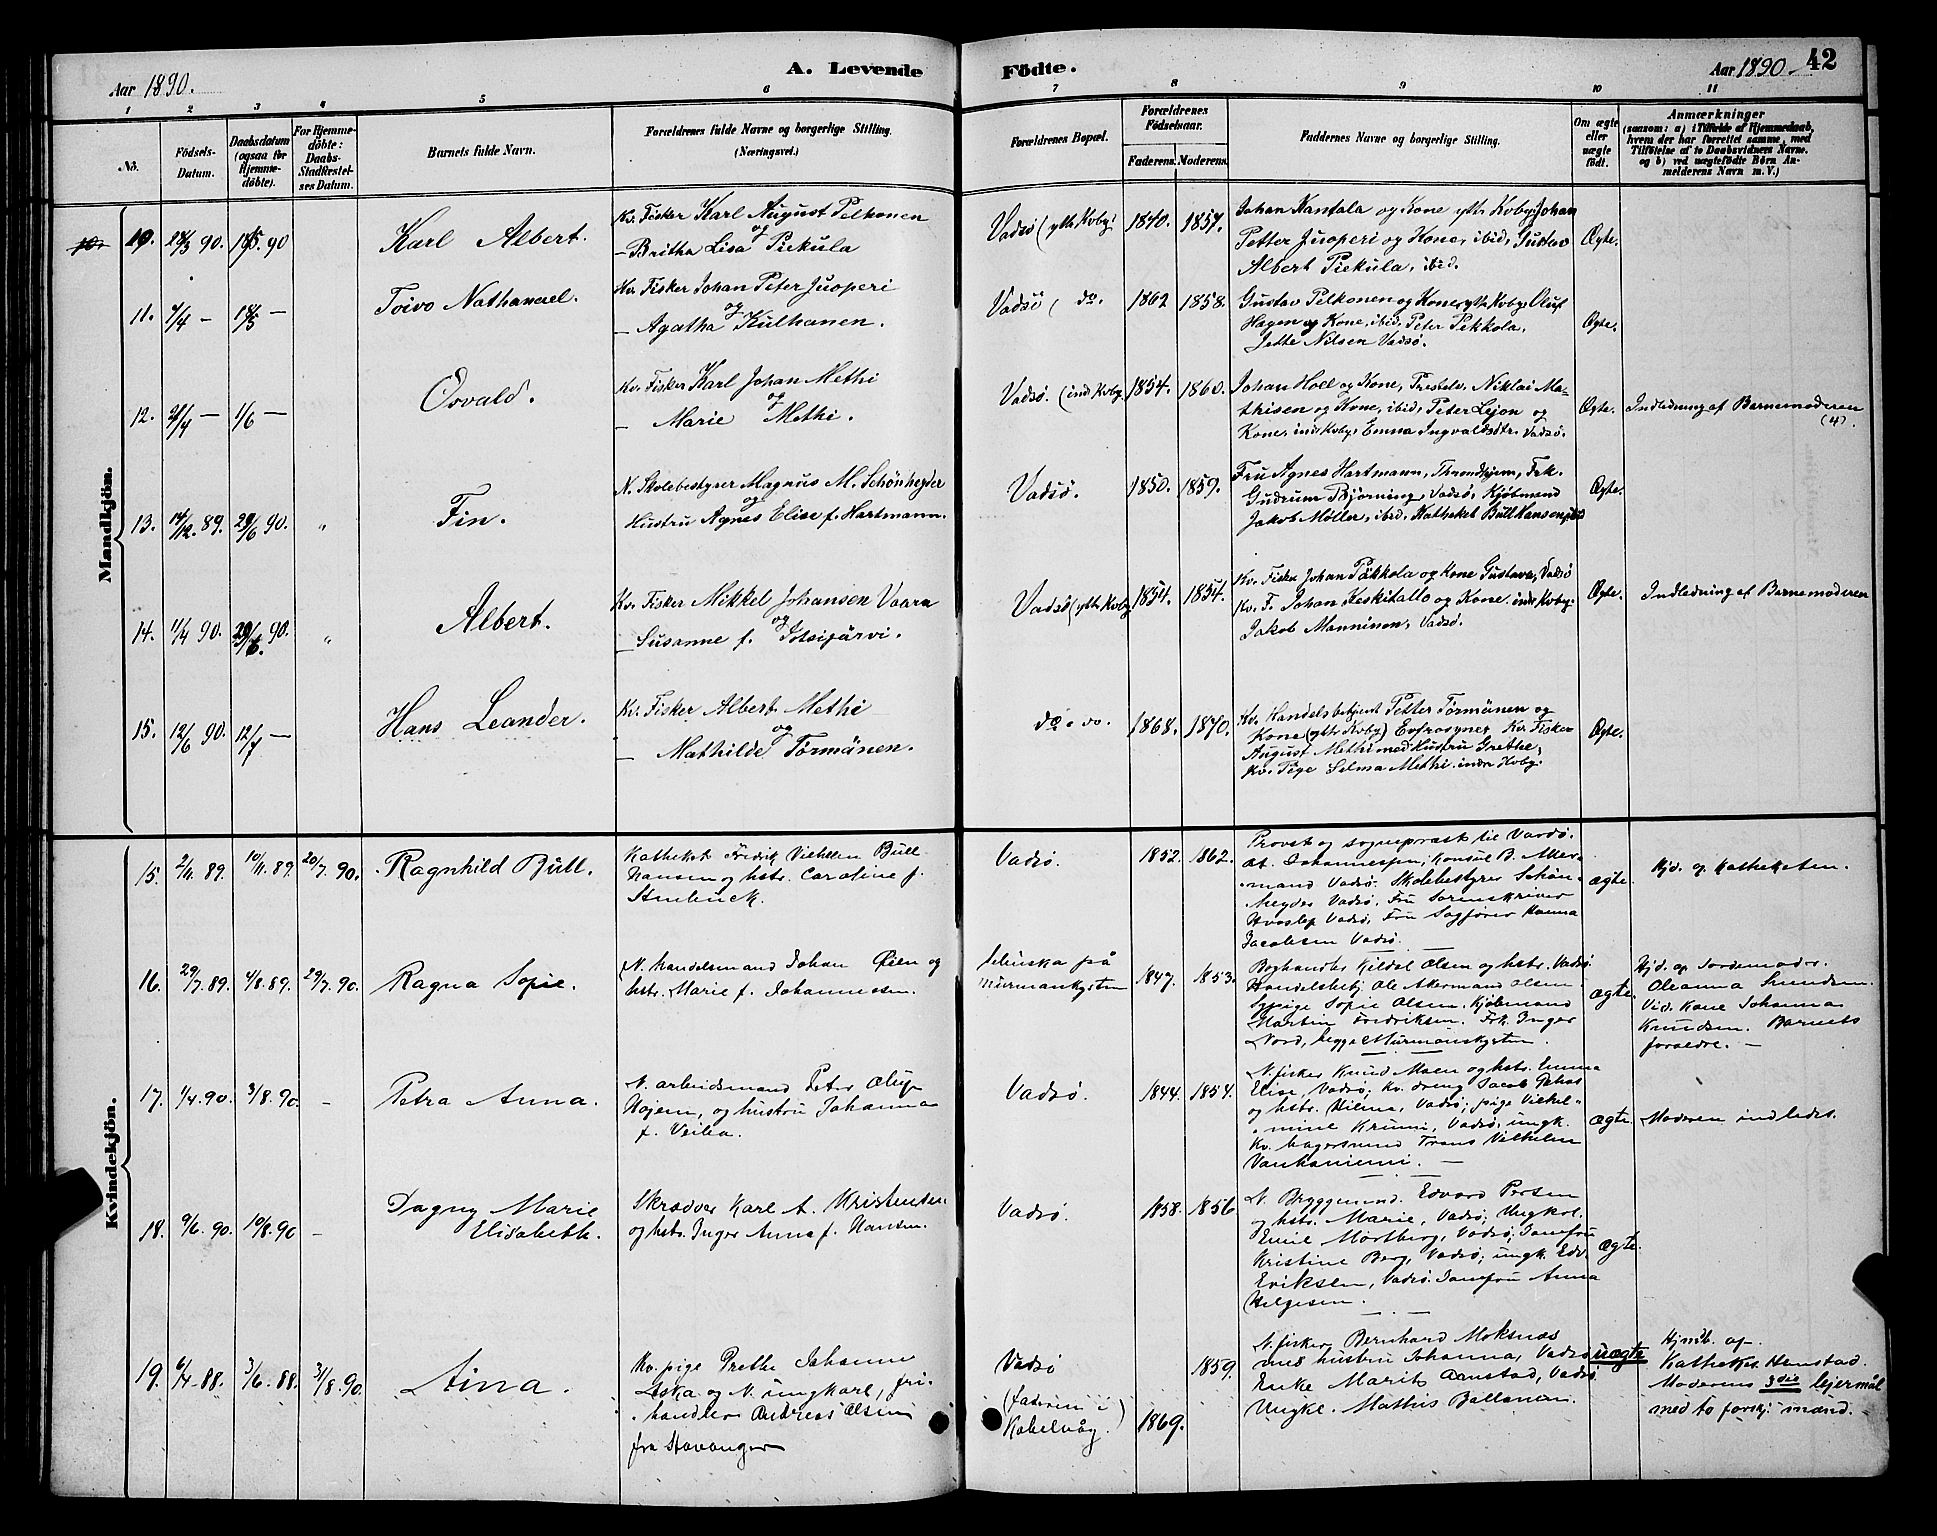 Aar 1890.
A. Levende
Födte.
Aar 1890.
42
1 2 3 4 5 6 7 8 9 10 11
No.
Födsels-Datum.
Daabsdatum (ogsaa for Hjemme-döbte).
For Hjemme-döbte: Daabs-Stadfæstel-ses Datum.
Barnets fulde Navn.
Forældrenes fulde Navne og borgerlige Stilling. (Næringsvei.)
Forældrenes Bopæl.
Forældrenes Födselsaar.
Faderens. Moderens.
Faddernes Navne og borgerlige Stilling.
Om ægte eller uægte födt.
Anmærkninger
(saasom: a) i Tilfælde af Hjemmedaab, hvem der har forrettet samme, med Tilföielse af to Daabsvidners Navne. og b) ved uægtefödte Börn An-melderens Navn m. V.)
Mandkjön.
10. 28/3 90. 18/5 90
Karl Albert.
Kv. Fisker Karl August Pelkonen
og
– Britha Lisa Piekula
Vadsö (ytre Kvby)
1840. 1857.
Johan Kantala og Kone ytre Kvby, Johan
Petter Juoperi og Kone, ibid, Gustav
Albert Piekula, ibid.
Ægte.
11. 7/4 – 18/5 –
Toivo Nathanael.
Kv. Fisker Johan Peter Juoperi
og
– Agatha Kulhanen.
Vadsö ( do.
1862 1858.
Gustav Pelkonen og Kone ytre Kvby, Oluf
Hagen og Kone, ibid, Peter Pekkola,
Jette Nilsen Vadsö.
Ægte.
12. 21/4 – 1/6 –
Osvald.
Kv. Fisker Karl Johan Methi
og
– Marie Methi.
Vadsö. (indre Kvby.
1854. 1860.
Johan Holl og Kone, Prestelv. Niklai Ma-
thisen og Kone, ibid, Peter Lejon og
Kone, indre Kvby, Emma Ingvaldsdtr. Vadsö.
Ægte.
Indledning af Barnemoderen
(4).
13. 14/12. 89. 29/6 90. "
Fin.
N. Skolebestyrer Magnus M. Schönheyder
og
Hustru Agnes Elise f. Hartmann.
Vadsö.
1850. 1859.
Fru Agnes Hartmann, Throndhjem, Frk.
Gudrun Bjorning, Vadsö, Kjöbmand
Jakob Möller, ibid, Katheket Bull Hansen, ibid
Ægte.
14. 11/4 90. 29/6. 90. "
Albert.
Kv. Fisker Mikkel Johansen Vaara
og
– Susanne f. Iotsijärvi.
Vadsö (ytre Kvby
1854. 1854.
Kv. Fisker Johan Päkkola og Kone Gustava, Vadsö
Kv. F. Johan Keskitallo og Kone indre Kvby.
Jakob Manninen, Vadsö.
Ægte.
Indledning af Barnemoderen
15. 12/6 90. 12/7 –
Hans Leander.
Kv. Fisker Albert Methi
og
– Mathilde Törmänen.
do. do.
1868. 1870.
Kv. Handelsbetjent Petter Törmänen og
Kone (ytre Kvby) Eufrosyner Kv. Fisker
August Methi med Hustru Grethe,
Kv. Pige Selma Methi indre Kvby.
Ægte.
Kvindekjön.
15. 2/11 89. 10/11. 89. 20/7 90.
Ragnhild Bull.
Katheket Fredrik Vilhelm Bull
Hansen og hstr. Caroline f.
Steenbuck.
Vadsö.
1852. 1862.
Provst og sognepræst til Vardö.
At. Johannessen; Konsul B. Aker-
mand Vadsö. Skolebestyrer Schön-
heyder Vadsö, Fru Sorenskriver
Hvoslef Vadsö, Fru Sagförer Hanna
Jacobsen Vadsö.
ægte.
Hjd. af Katheketen.
16. 29/7. 89. 4/8. 89. 29/7. 90.
Ragna Sofie.
N. handelsmand Johan Öien og
hstr. Marie f. Johannessen.
på
Murmankysten
1847. 1853.
Boghandler Kildal Olsen og hstr. Vadsö.
Handelsbetj. Ole Akermand Olsen
Sypige Sofie Olsen. Kjöbmand
Martin Fredriksen. Frk. Inger
Nord, begge Murmanskysten.
ægte.
Hjd. af Jordemoder
Oleanna Smedsen.
Vid. Kone Johanna
Knudsen. Barnets
forældre. –
17. 1/4. 90. 3/8. 90. –
Petra Anna.
N. arbeidsmand Peter Oluf
Hojem, og hustru Johanna
f. Veiba.
Vadsö.
1844. 1854.
N. fisker Knud Moen og hstr. Emma
Elise, Vadsö; Kv. dreng Jacob
og hstr. Hilma, Vadsö; pige Vilhel-
mine Krunni, Vadsö; ungk.
Kv. bagersvend Frans Vilhelm
Vanhaniemi. –
ægte.
Moderen indledes.
18. 9/6. 90. 10/8. 90 –
Dagny Marie
Elisabeth.
Skrædder Karl A. Kristensen
og hstr. Inger Anna f. Hansen.
Vadsö.
1858. 1856
N. Bryggemand. Edvard Persen
og hstr. Marie, Vadsö; Ungkarl.
Emil Mortberg, Vadsö; Jomfru
Kristine Berg, Vadsö; ungk. Edv.
Eriksen, Vadsö. Jomfru Anna
Helgesen.
ægte.
19. 6/4. 88. 3/6. 88. 31/8. 90.
Aina.
Kv. pige Grethe Johanne
Aska og N. ungkarl, fri-
handler Andreas Olsen
fra Stavanger
Vadsö
(faderen i
Kabelvåg.)
1869. 1859.
N. fisker Bernhard Moksnæs
med hustru Johanna, Vadsö
Enke Marit Arnstad, Vadsö
Ungk. Mathis Ballanan.
uægte
Hjmdb. af
Katheket Henstad.
Moderens 3die leiermål
med to forskj. mænd.